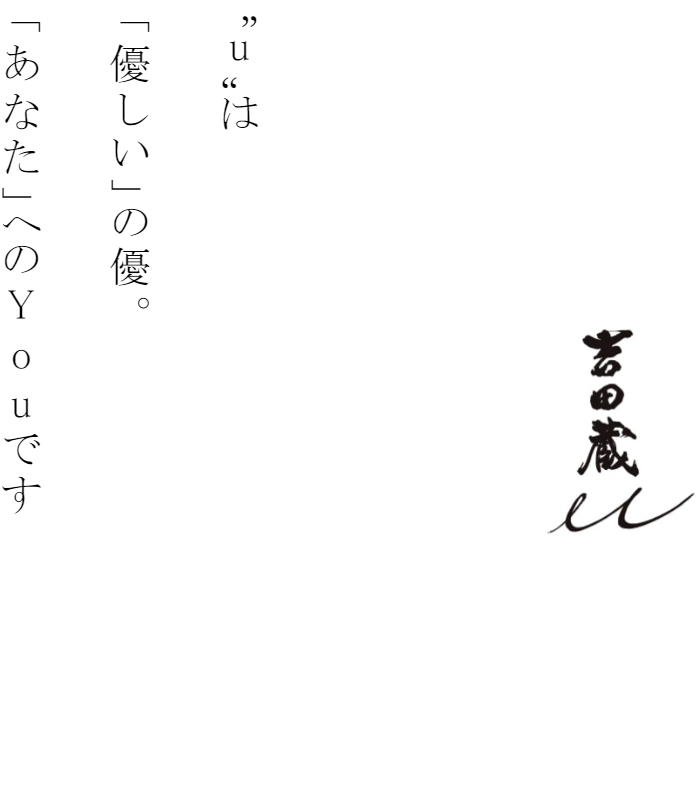 吉田蔵u
”u“は
「優しい」の優。
「あなた」へのYouです